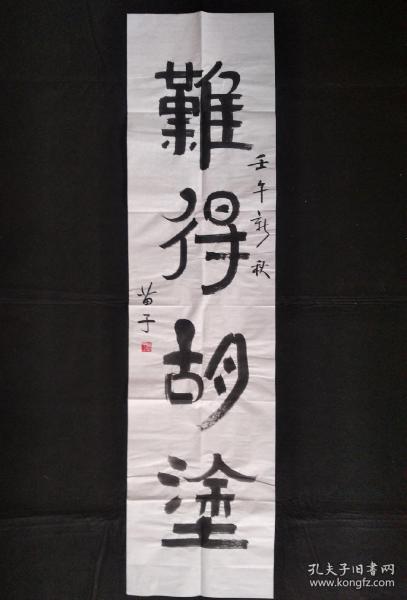 難得胡塗
壬午新秋
苗子
孔夫子旧书网
www.kongfz.com